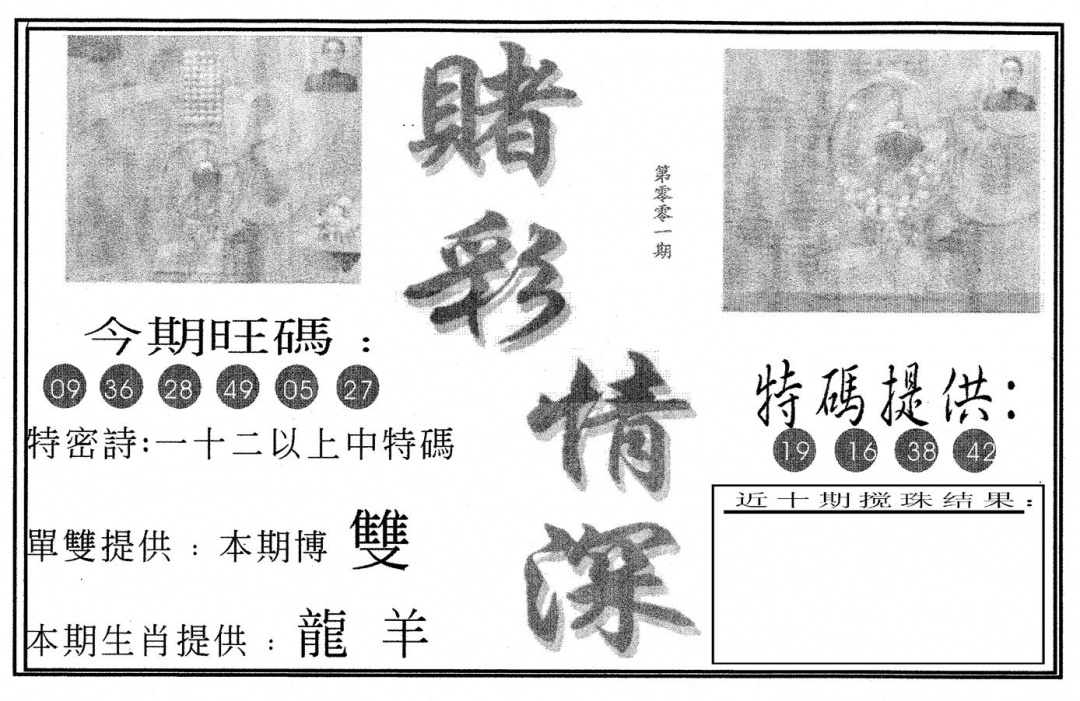 賭彩情深
第零零一期
今期旺碼：
09 36 28 49 05 27
特密詩:一十二以上中特碼
單雙提供：本期博 雙
本期生肖提供：龍 羊
特碼提供:
19 16 38 42
近十期搅珠结果：